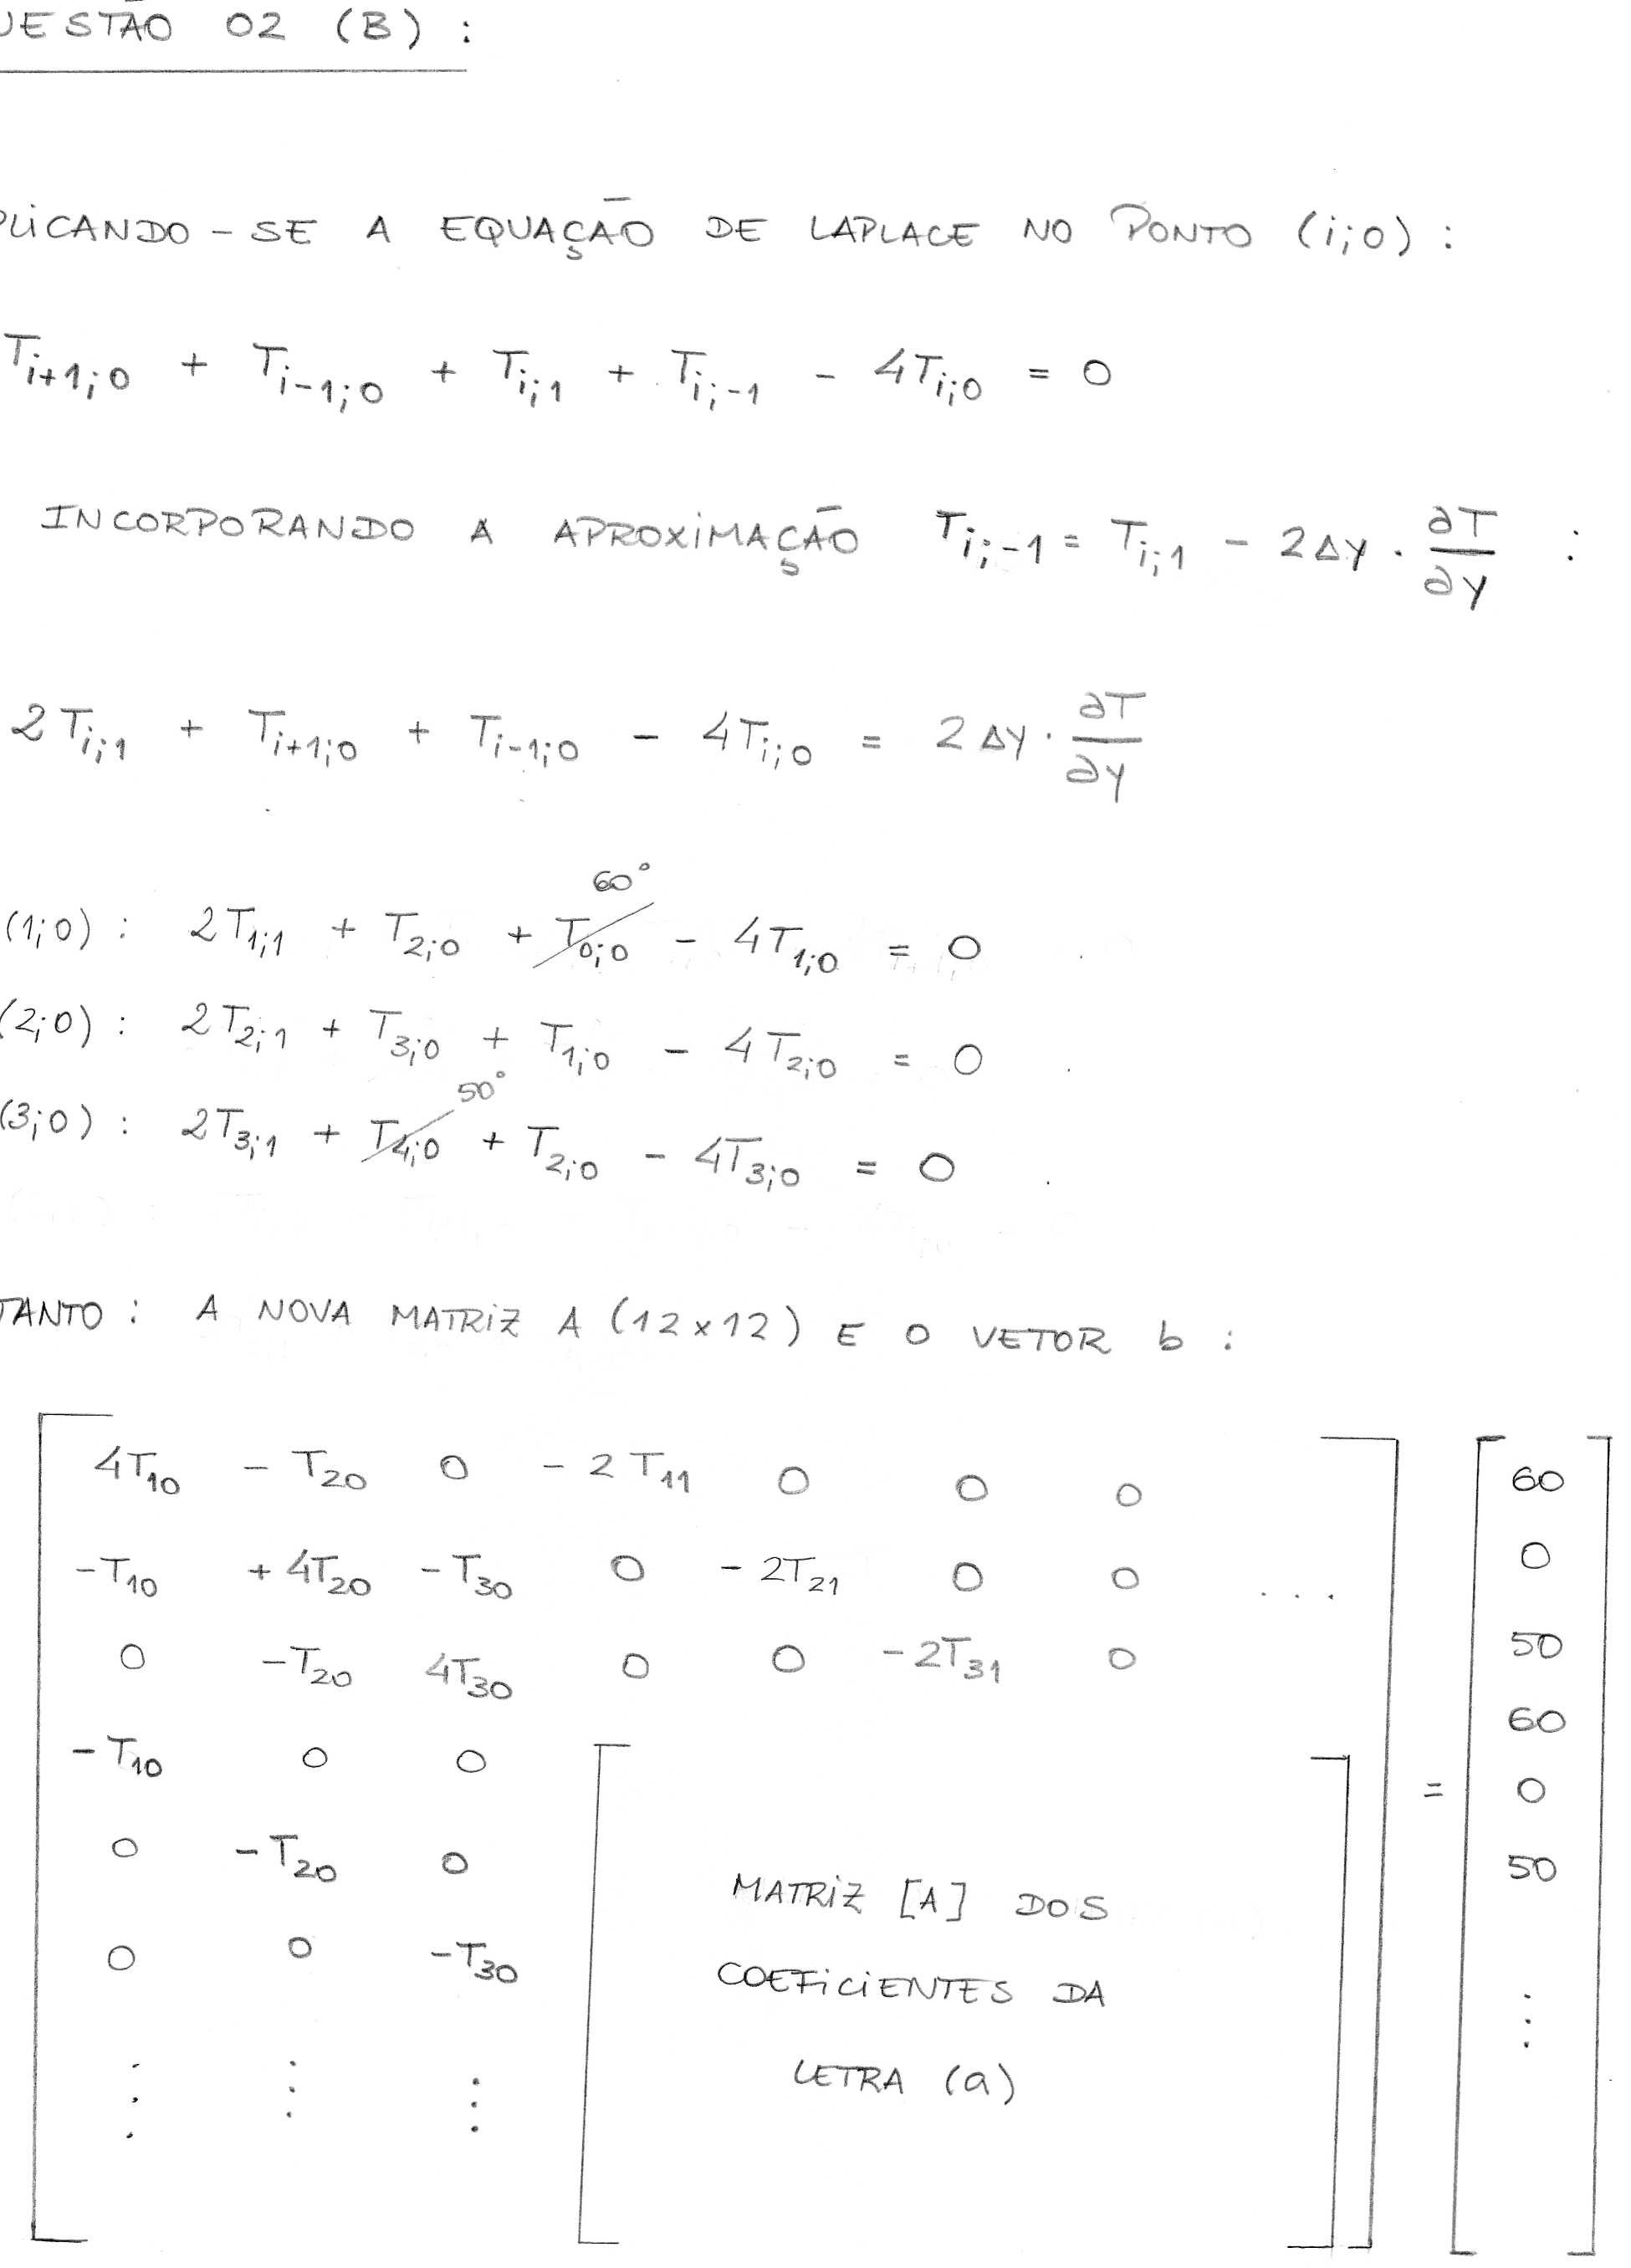 UESTÃO 02 (B) :
PLICANDO-SE A EQUAÇÃO DE LAPLACE NO PONTO (i;0) :
T_{i+1;0} + T_{i-1;0} + T_{i;1} + T_{i;-1} - 4T_{i;0} = 0
INCORPORANDO A APROXIMAÇÃO T_{i;-1} = T_{i;1} - 2Δy · ∂T/∂y :
2T_{i;1} + T_{i+1;0} + T_{i-1;0} - 4T_{i;0} = 2Δy · ∂T/∂y
60°
(1;0) : 2T_{1;1} + T_{2;0} + T_{0;0} - 4T_{1;0} = 0
(2;0) : 2T_{2;1} + T_{3;0} + T_{1;0} - 4T_{2;0} = 0
50°
(3;0) : 2T_{3;1} + T_{4;0} + T_{2;0} - 4T_{3;0} = 0
TANTO : A NOVA MATRIZ A (12x12) E O VETOR b :
4T_{10} - T_{20} 0 - 2T_{11} 0 0 0 60
-T_{10} + 4T_{20} -T_{30} 0 - 2T_{21} 0 0 ... 0
0 -T_{20} 4T_{30} 0 0 -2T_{31} 0 50
-T_{10} 0 0 60
= 0
0 -T_{20} 0 50
MATRIZ [A] DOS
0 0 -T_{30}
COEFICIENTES DA
LETRA (a)